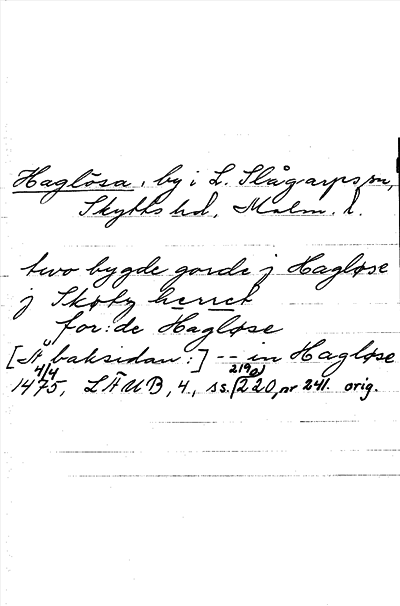 Haglösa, by i L. Slågarps sn,
Skytts hd, Malm. l.
two bygde gorde j Hagløse
j Skøtz herret
for:de Hagløse
[Å baksidan:] -- in Hagløse
4/4 219(
1475, LÄUB, 4, ss. 220, nr 241. orig.